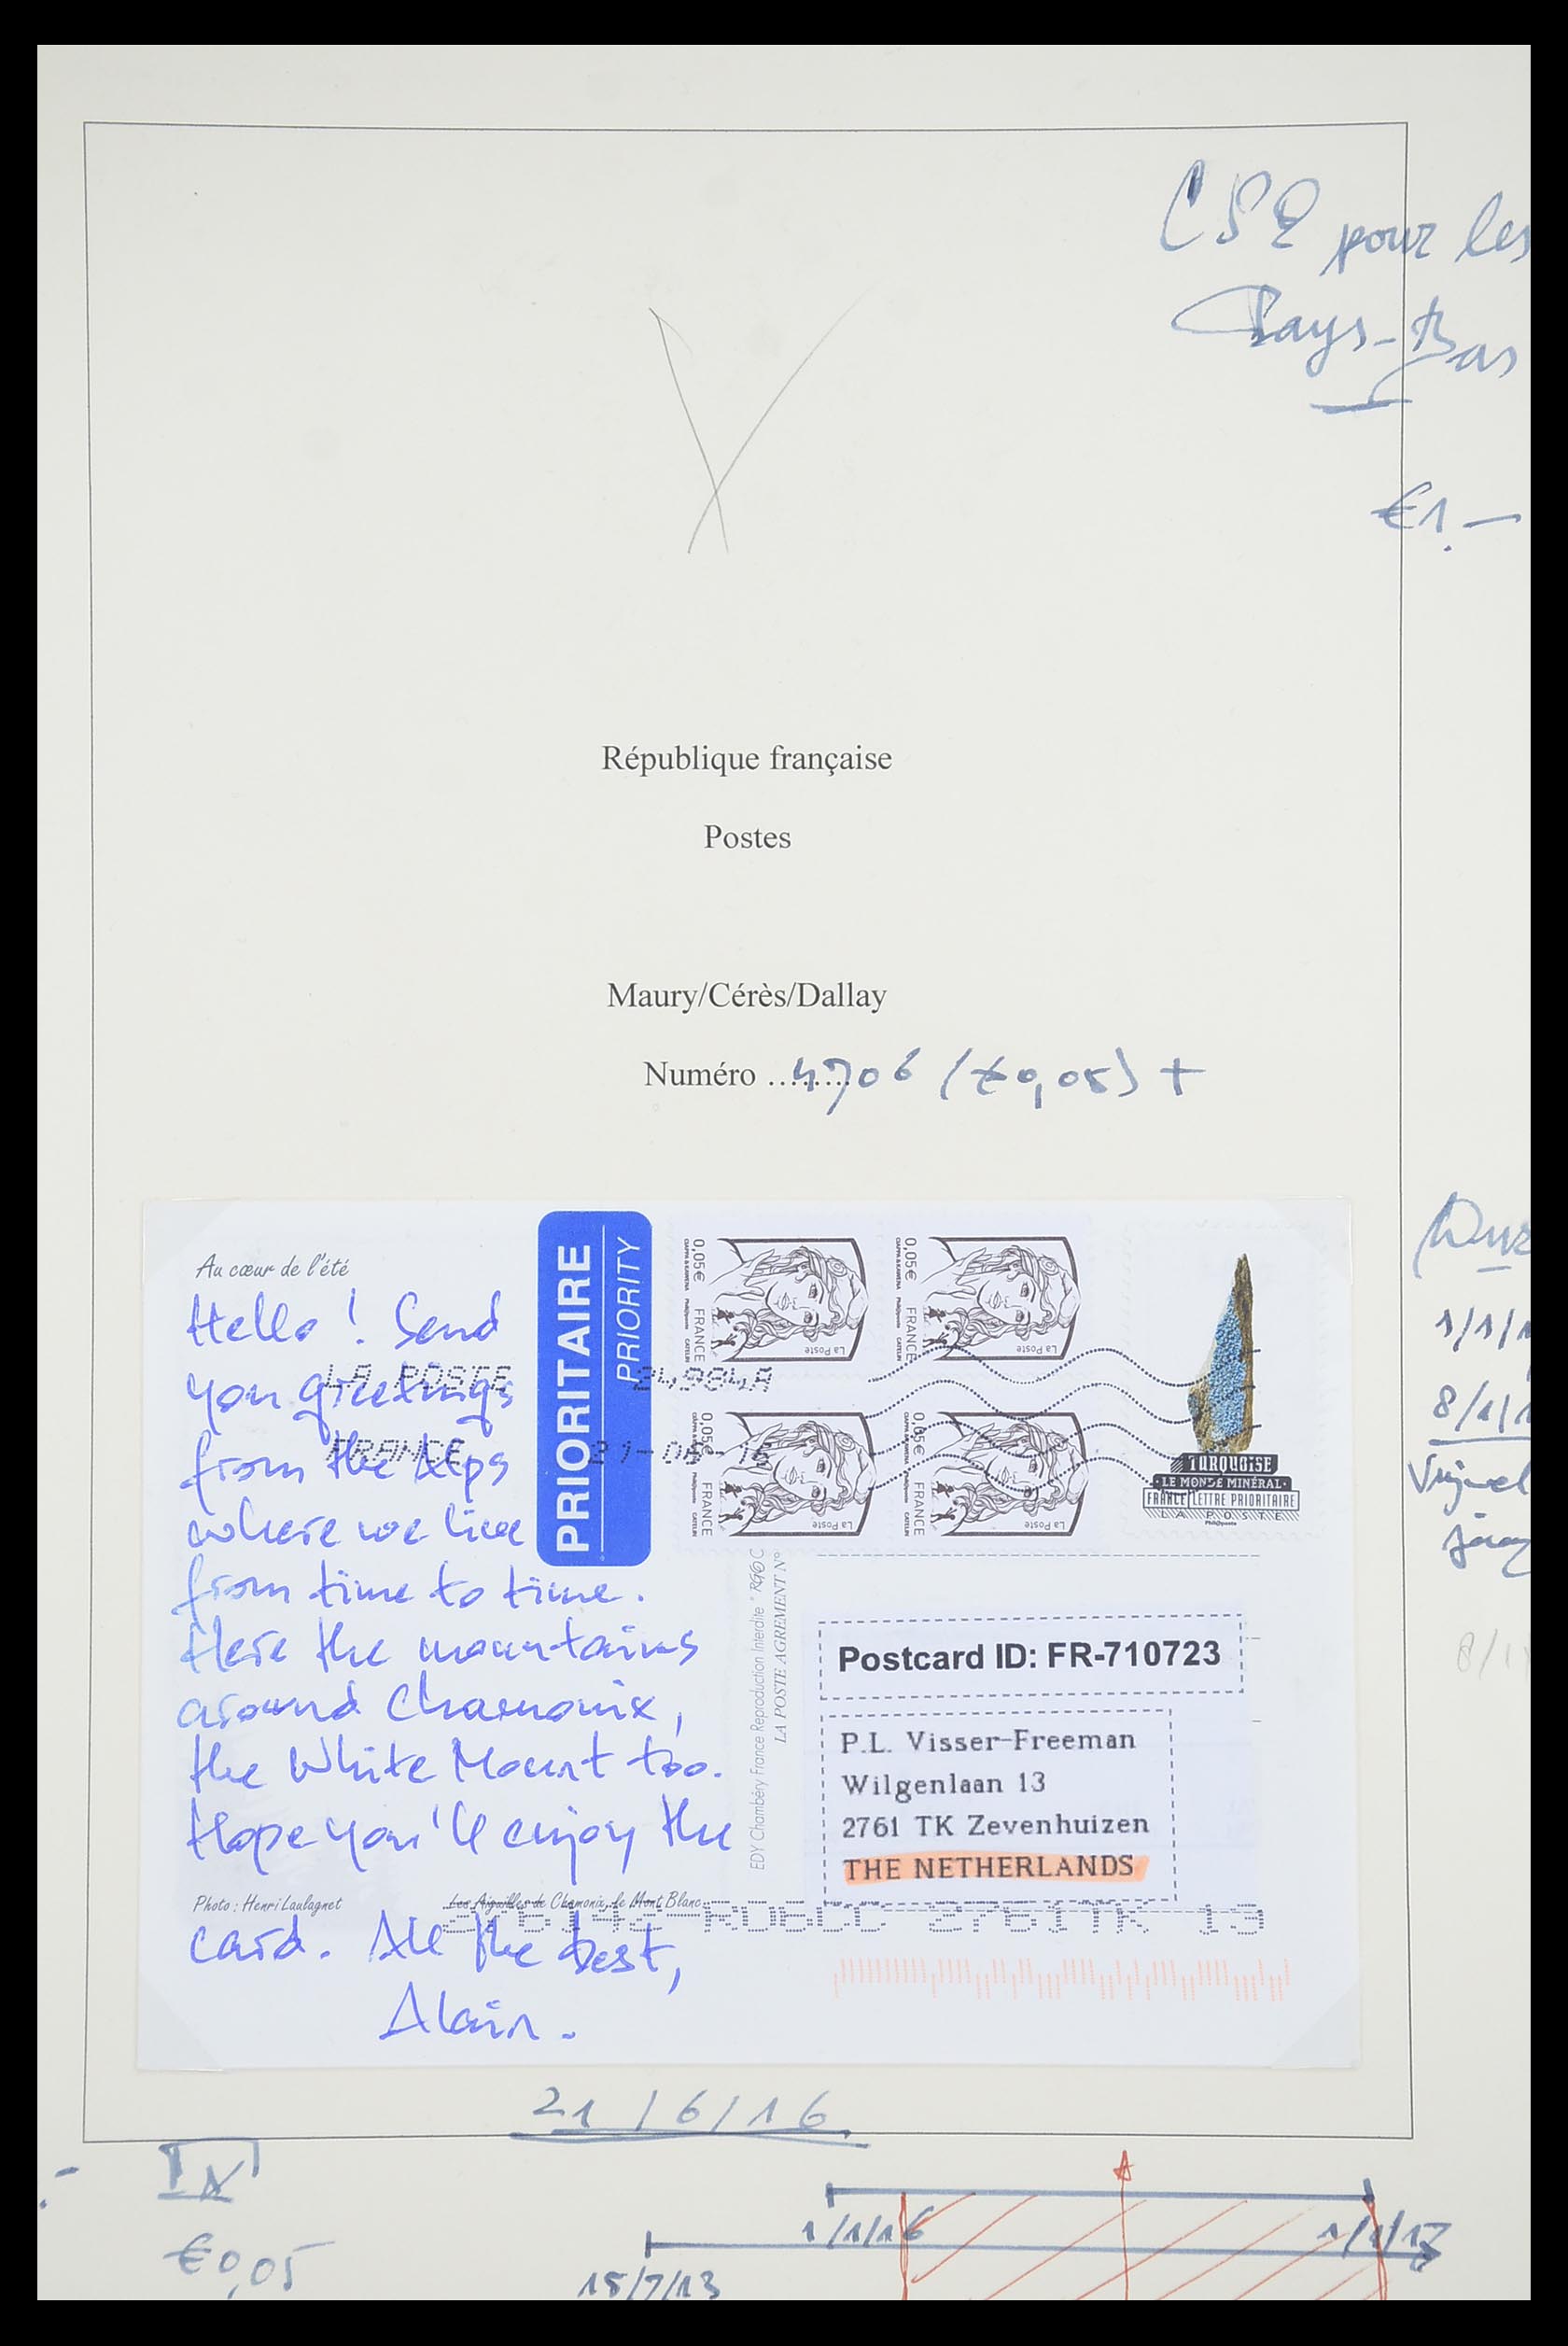 CSE pour les
Pays-Bas
€1.—
République française
Postes
Maury/Cérès/Dallay
Numéro ........ 4706 (€0,05) +
Au cœur de l'été
Hello! Send
you greetings
from the Alps
where we live
from time to time.
Here the mountains
around Chamonix,
the White Mount too.
Hope you'll enjoy the
card. All the best,
Alain.
LA POSTE 24984A
FRANCE 21-06-16
PRIORITAIRE
PRIORITY
0,05€ FRANCE
La Poste
0,05€ FRANCE
La Poste
0,05€ FRANCE
La Poste
0,05€ FRANCE
La Poste
TURQUOISE
·LE MONDE MINÉRAL·
FRANCE LETTRE PRIORITAIRE
LA POSTE
Phil@poste
EDY Chambéry France Reproduction Interdite
LA POSTE AGREMENT N°
Postcard ID: FR-710723
P.L. Visser-Freeman
Wilgenlaan 13
2761 TK Zevenhuizen
THE NETHERLANDS
Photo : Henri Laulagnet
Les Aiguilles de Chamonix, le Mont Blanc
2761TK 13
1/1/1
8/1/1
8/1
21/6/16
€0,05
1/1/16
1/1/17
15/7/13